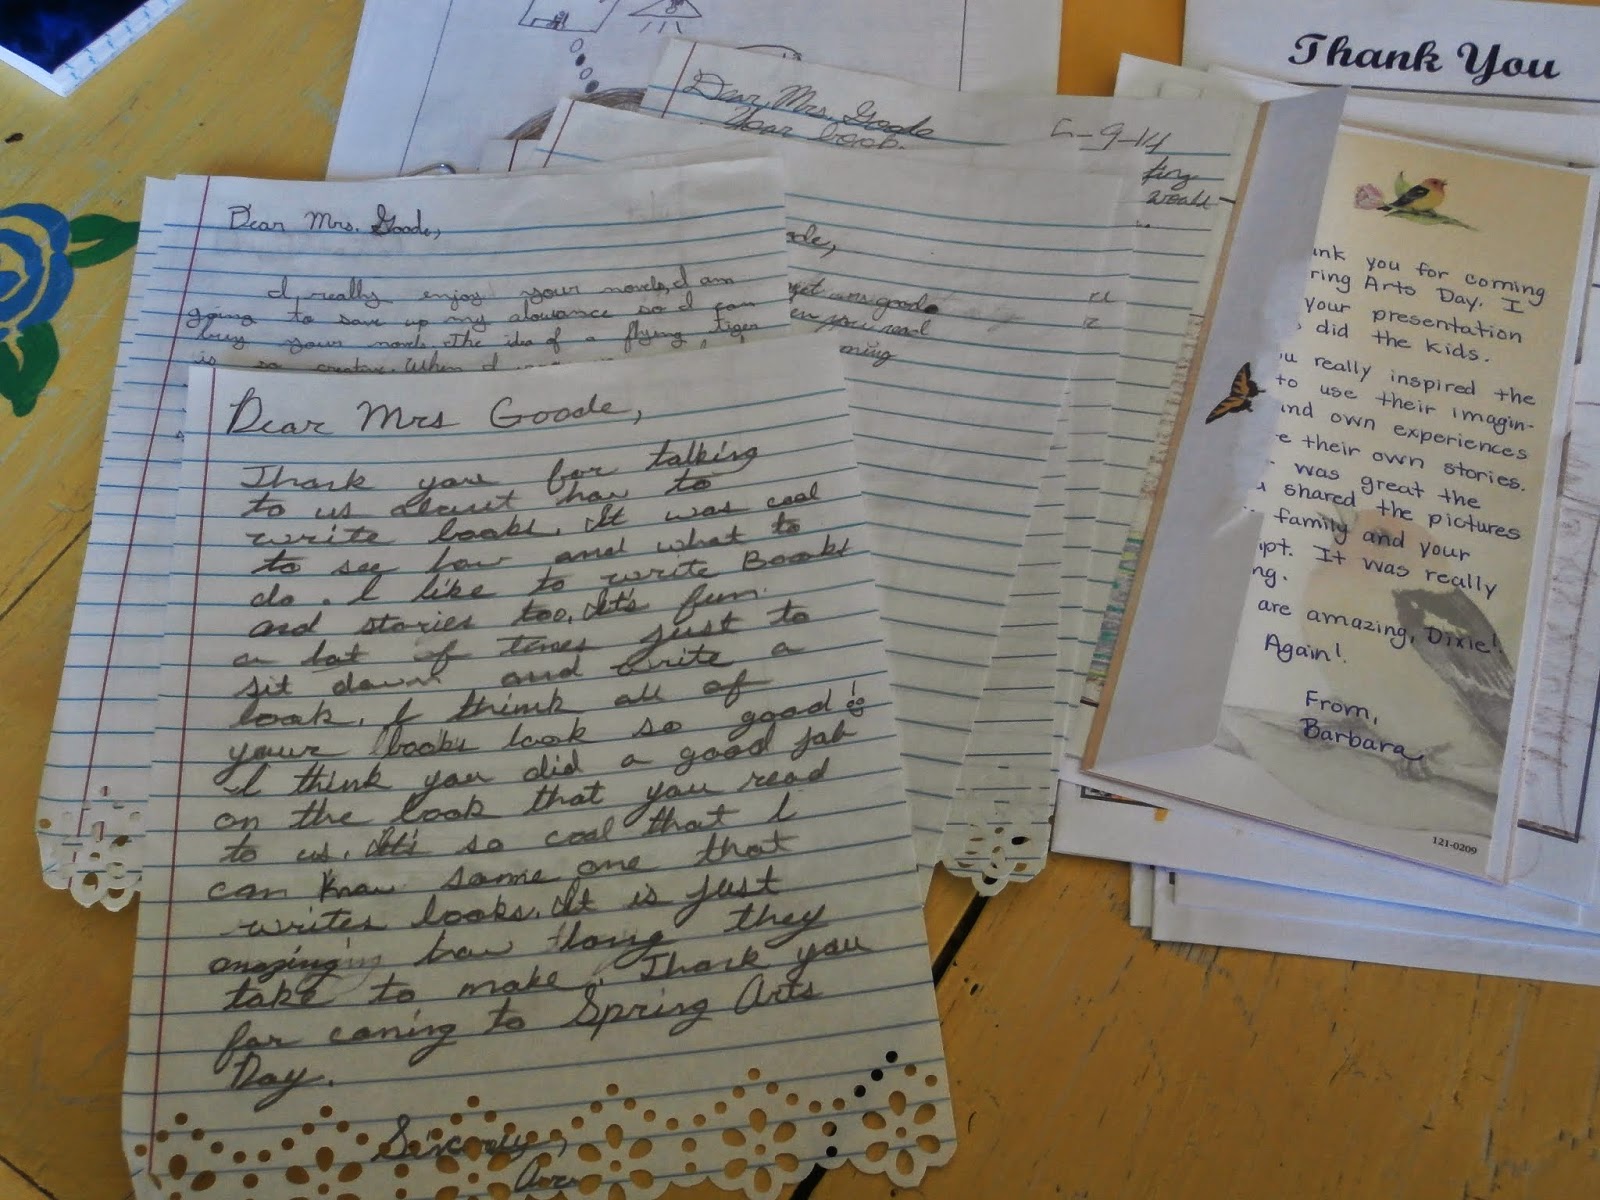 Thank You
Dear Mrs. Goode
5-9-14
Dear Mrs. Goode,
I really enjoy your novels, I am
going to save up my alowance so I can
buy your novel. The idea of a flying tiger
is so creative. When I
Dear Mrs Goode,
Thank you for talking
to us about how to
write books. It was cool
to see how and what to
do. I like to write Books
and stories too, It's fun
a lot of times just to
sit down and write a
book. I think all of
your books look so good!
I think you did a good job
on the book that you read
to us. It's so cool that I
can know some one that
writes books. It is just
amazing how long they
take to make. Thank you
for coming to Spring Arts
Day.
Sincrely,
you for coming
ring Arts Day. I
your presentation
did the kids.
really inspired the
to use their imagin-
own experiences
their own stories.
was great the
shared the pictures
family and your
ipt. It was really
ng.
are amazing, Dixie!
Again!
From,
Barbara
121-0209